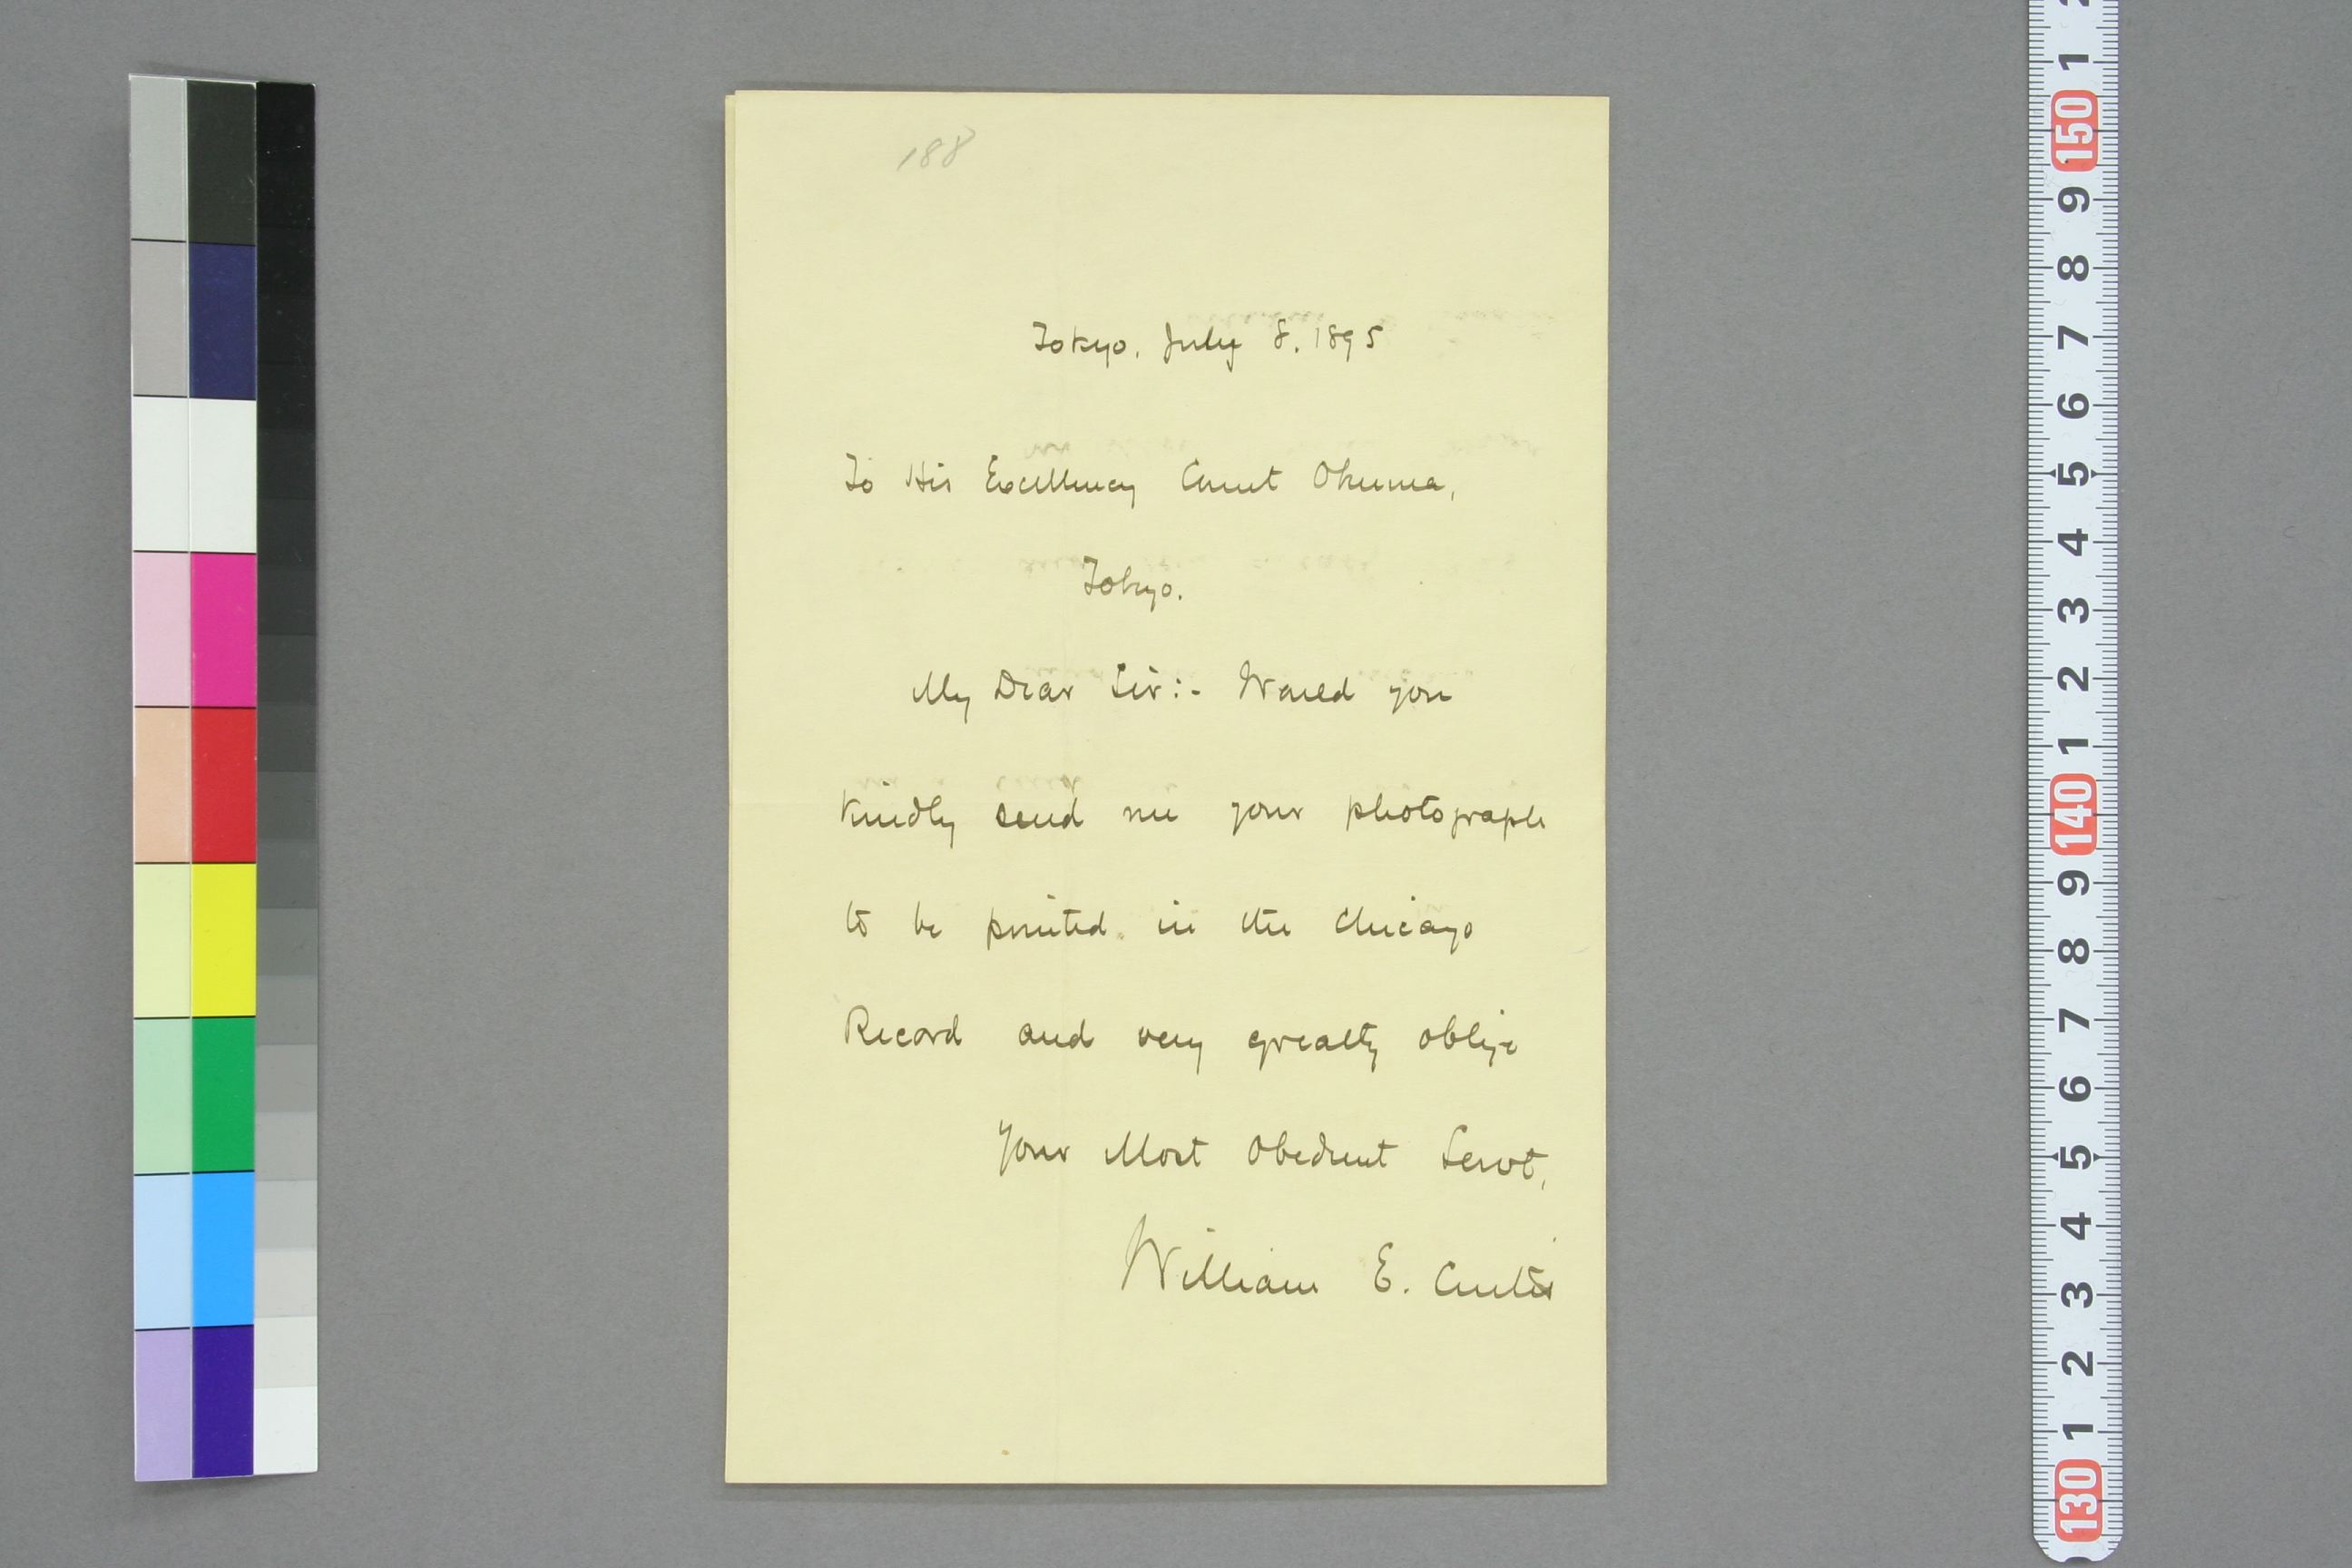 188
Tokyo. July 8. 1895
To His Excellency Count Okuma,
Tokyo.
My Dear Sir:- Would you
kindly send me your photograph
to be printed in the Chicago
Record and very greatly oblige
Your Most Obedient Servt,
William E. Curtis
1
150
9
8
7
6
5
4
3
2
1
140
9
8
7
6
5
4
3
2
1
130